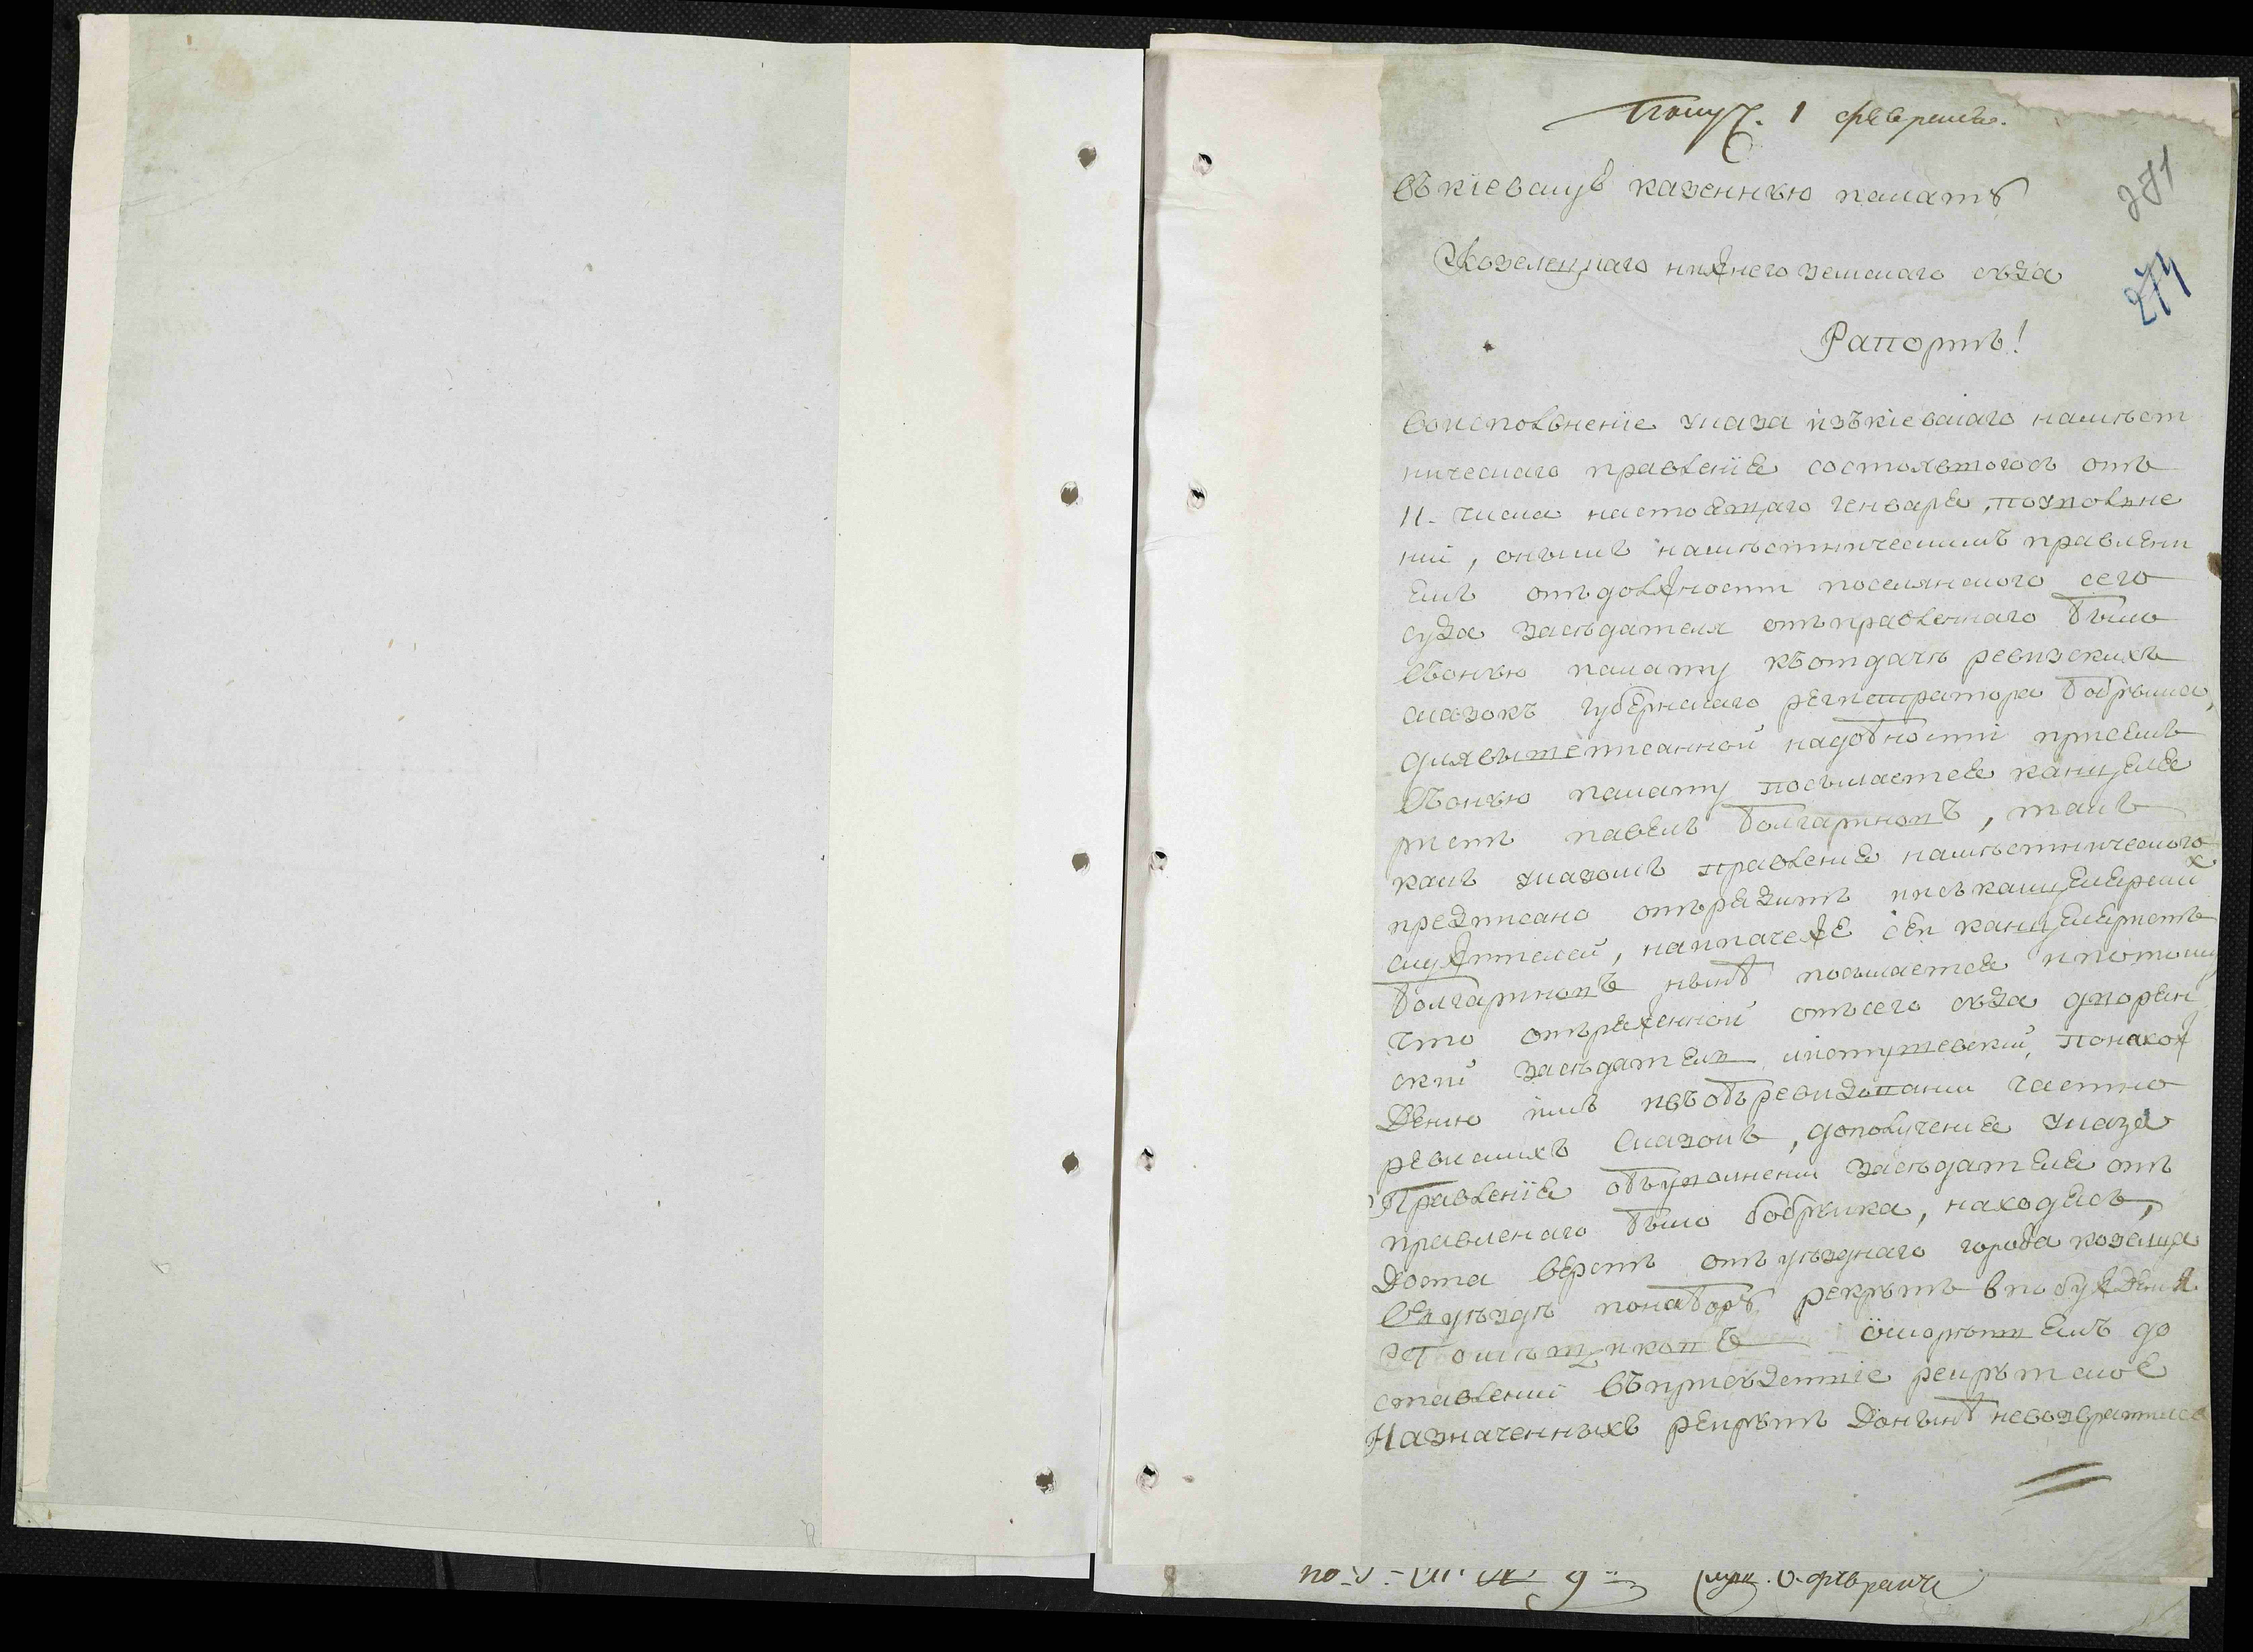 Получ. 1 февраля.
271
274
Въ киевскую казенную палату
Козелецкого нижнего земского суда
Рапортъ!
Воисполънение указа изъ киевскаго намѣст
ническаго правления состоявшогось отъ
11. числа настоящаго генваря, поуволне
нии, онымъ намѣстническимъ правлени
емъ отъ должности поселянского сего
суда засѣдателя отъправленнаго было
въ оную палату къ отдачѣ ревизскихъ
сказокъ губернского регистратора бобрыка,
для вышеписанной надобности присемъ
въ оную палату посылается канцеля
ристъ павелъ болгариновъ, такъ
какъ указомъ правления намѣстнического
предписано отърядить изъ канцелярскихъ
служителей, наипаче же сей канцеляристъ
болгариновъ нынѣ посылается и потому
что отъряженной отъ сего суда дворян
ский засѣдатель понахож
дению имъ изъ объревизовании частно
ревискихъ сказокъ, до получения указа
Правления объ уволнении засѣдателя отъ
правленаго было бобрыка, находясь,
до ста верстъ отъ уѣзднаго города козельца
въ уѣздѣ по набору рекрутъ в побуждения
Помѣщиковъ скорѣйшемъ до
ставлении въ присудствие рекрутское
Назначенныхъ рекрутъ донынѣ невозвратился
февраля